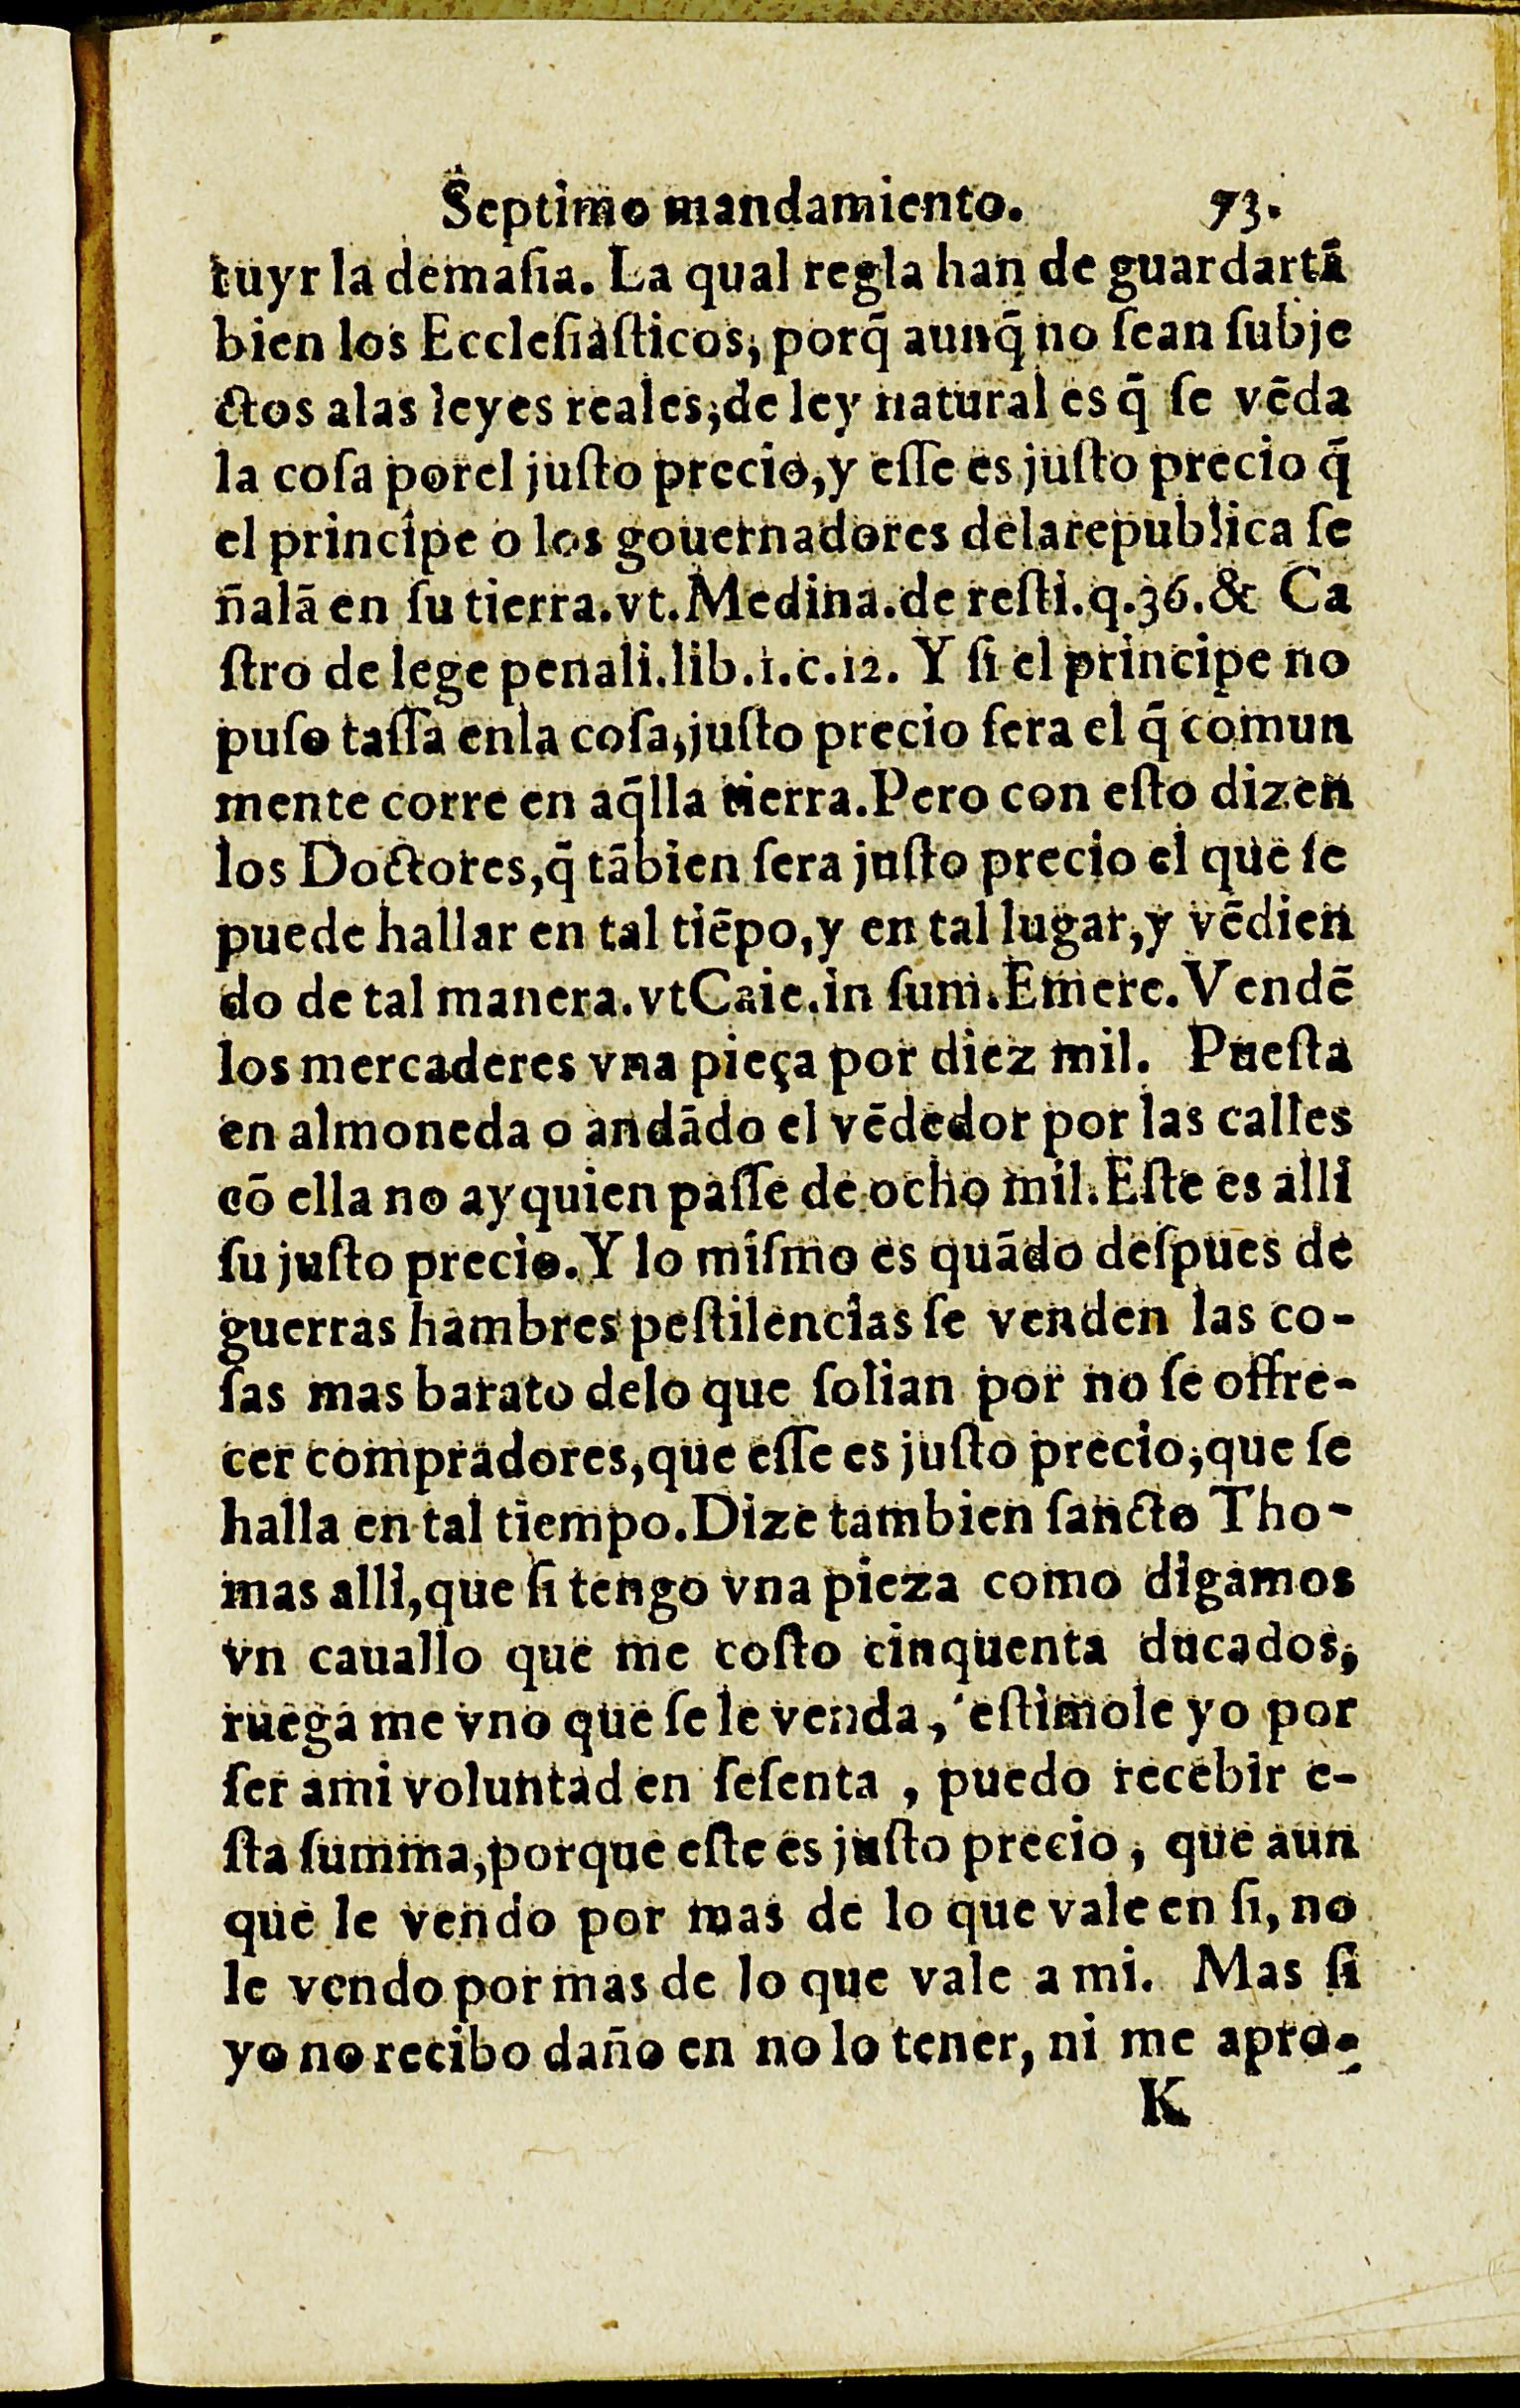 Septimo mandamiento. 73.
tuyr la demaſia. La qual regla han de guardartã
bien los Eccleſiaſticos, porq̃ aunq̃ no ſean ſubje
ctos alas leyes reales; de ley natural es q̃ ſe vẽda
la coſa porel juſto precio, y eſſe es juſto precio q̃
el principe o los gouernadores delarepublica ſe
ñalã en ſu tierra. vt. Medina. de reſti. q. 36. & Ca
ſtro de lege penali. lib. 1. c. 12. Y ſi el principe no
puſo taſſa enla coſa, juſto precio ſera el q̃ comun
mente corre en aq̃lla tierra. Pero con eſto dizen
los Doctores, q̃ tãbien ſera juſto precio el que ſe
puede hallar en tal tiẽpo, y en tal lugar, y vẽdien
do de tal manera. vt Caie. in ſum. Emere. Vendẽ
los mercaderes vna pieça por diez mil. Pueſta
en almoneda o andãdo el vẽdedor por las calles
cõ ella no ay quien paſſe de ocho mil. Eſte es alli
ſu juſto precio. Y lo miſmo es quãdo deſpues de
guerras hambres peſtilencias ſe venden las co-
ſas mas barato delo que ſolian por no ſe offre-
cer compradores, que eſſe es juſto precio, que ſe
halla en tal tiempo. Dize tambien ſancto Tho-
mas alli, que ſi tengo vna pieza como digamos
vn cauallo que me coſto cinquenta ducados,
ruega me vno que ſe le venda, eſtimole yo por
ſer ami voluntad en ſeſenta, puedo recebir e-
ſta ſumma, porque eſte es juſto precio, que aun
que le vendo por mas de lo que vale en ſi, no
le vendo por mas de lo que vale a mi. Mas ſi
yo no recibo daño en no lo tener, ni me apro-
K